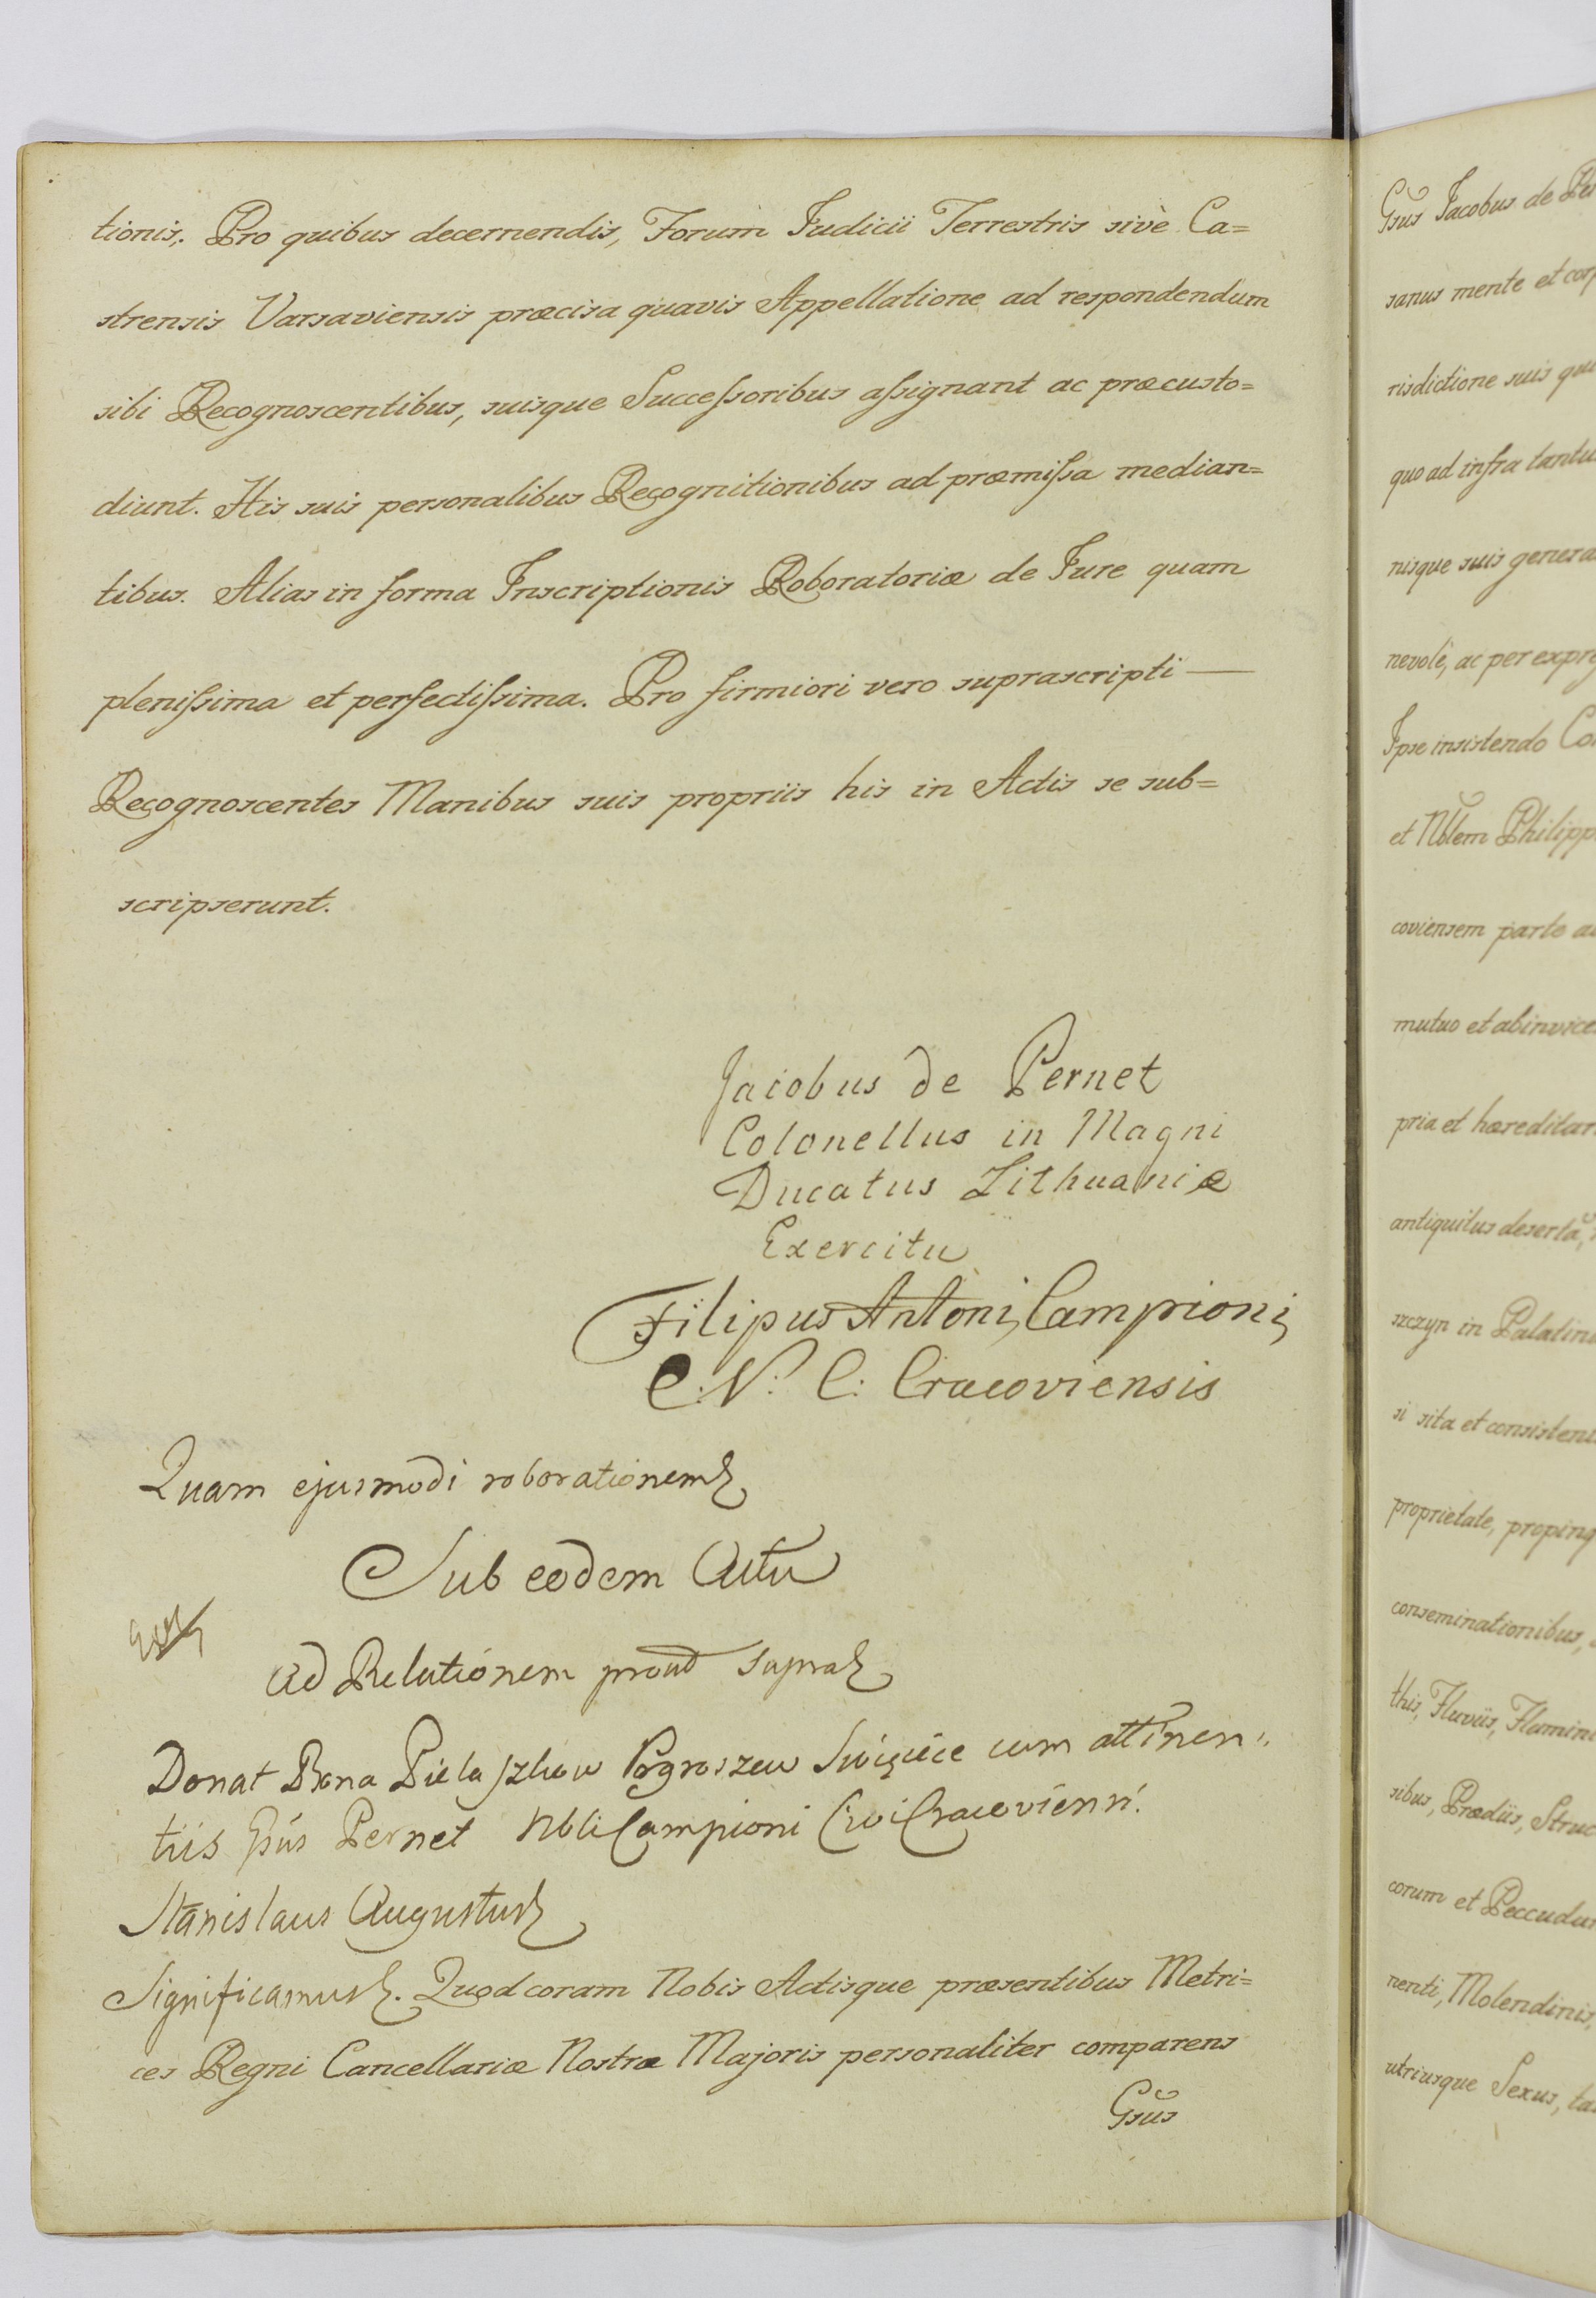 tionis. Pro quibus decernendis, Forum Judicii Terrestris sivè Ca=
strensis Varsaviensis præcisa quavis Appellatione ad respondendum
sibi Recognoscentibus, suisque Successoribus assignant ac præcusto=
diunt. His suis personalibus Recognitionibus ad præmissa median=
tibus. Alias in forma Inscriptionis Roboratoriæ de Jure quam
plenissima et perfectissima. Pro firmiori vero suprascripti —
Recognoscentes Manibus suis propriis his in Actis se sub=
scripserunt.
Jacobus de Pernet
Colonellus in Magni
Ducatus Lithuaniæ
Exercitu
Filipus Antoni Campioni
C: N: C: Cracoviensis
Quam ejusmodi roborationem
Sub eodem Actu
Ad Relationem prout supra
Donat Bona Pogroszew Swięcice cum attinen:
tiis Gsus Pernet Nbli Campioni Civi Cracoviensi.
Stanislaus Augustus
Significamus. Quod coram Nobis Actisque præsentibus Metri=
ces Regni Cancellariæ Nostræ Majoris personaliter comparens
Gsus
Gsus Jacobus de
sanus mente et
risdictione suis
quo ad infra
nisque suis
nevolè, ac per
Ipse insistendo
et Nblem
coviensem parte
mutuo et
pria et
antiquitus deserta,
szczyn in
si sita et
proprietate,
conseminationibus,
this, Fluviis,
sibus, Prædiis,
corum et
nenti, Molendinis,
utriusque Sexus,